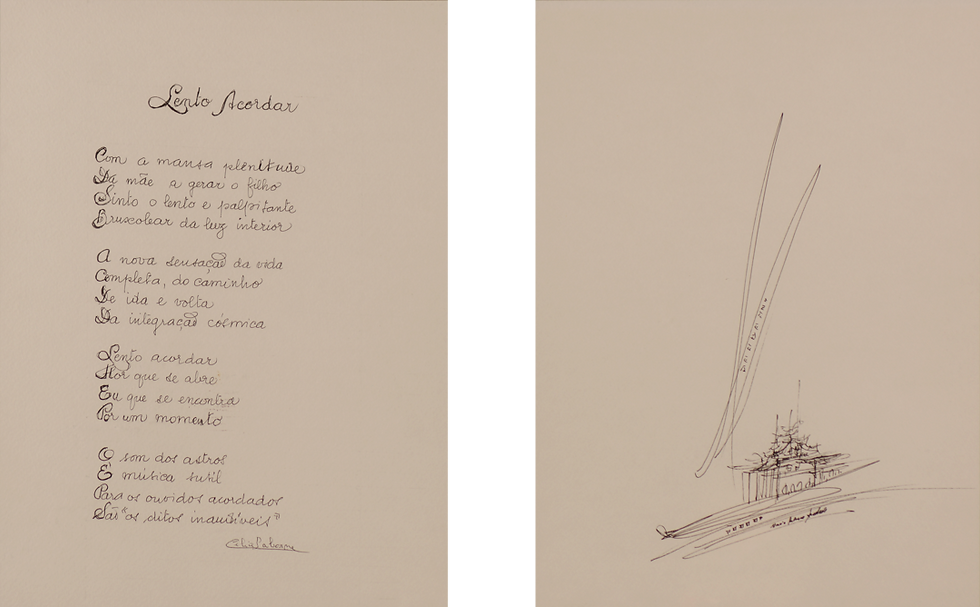 Lento Acordar
Com a mansa plenitude
Da mãe a gerar o filho
Sinto o lento e palpitante
Bruxolear da luz interior
A nova sensação da vida
Completa, do caminho
De ida e volta
Da integração cósmica
Lento acordar
Flor que se abre
Eu que se encontra
Por um momento
O som dos astros
É música sutil
Para os ouvidos acordados
São "os ditos inaudíveis"